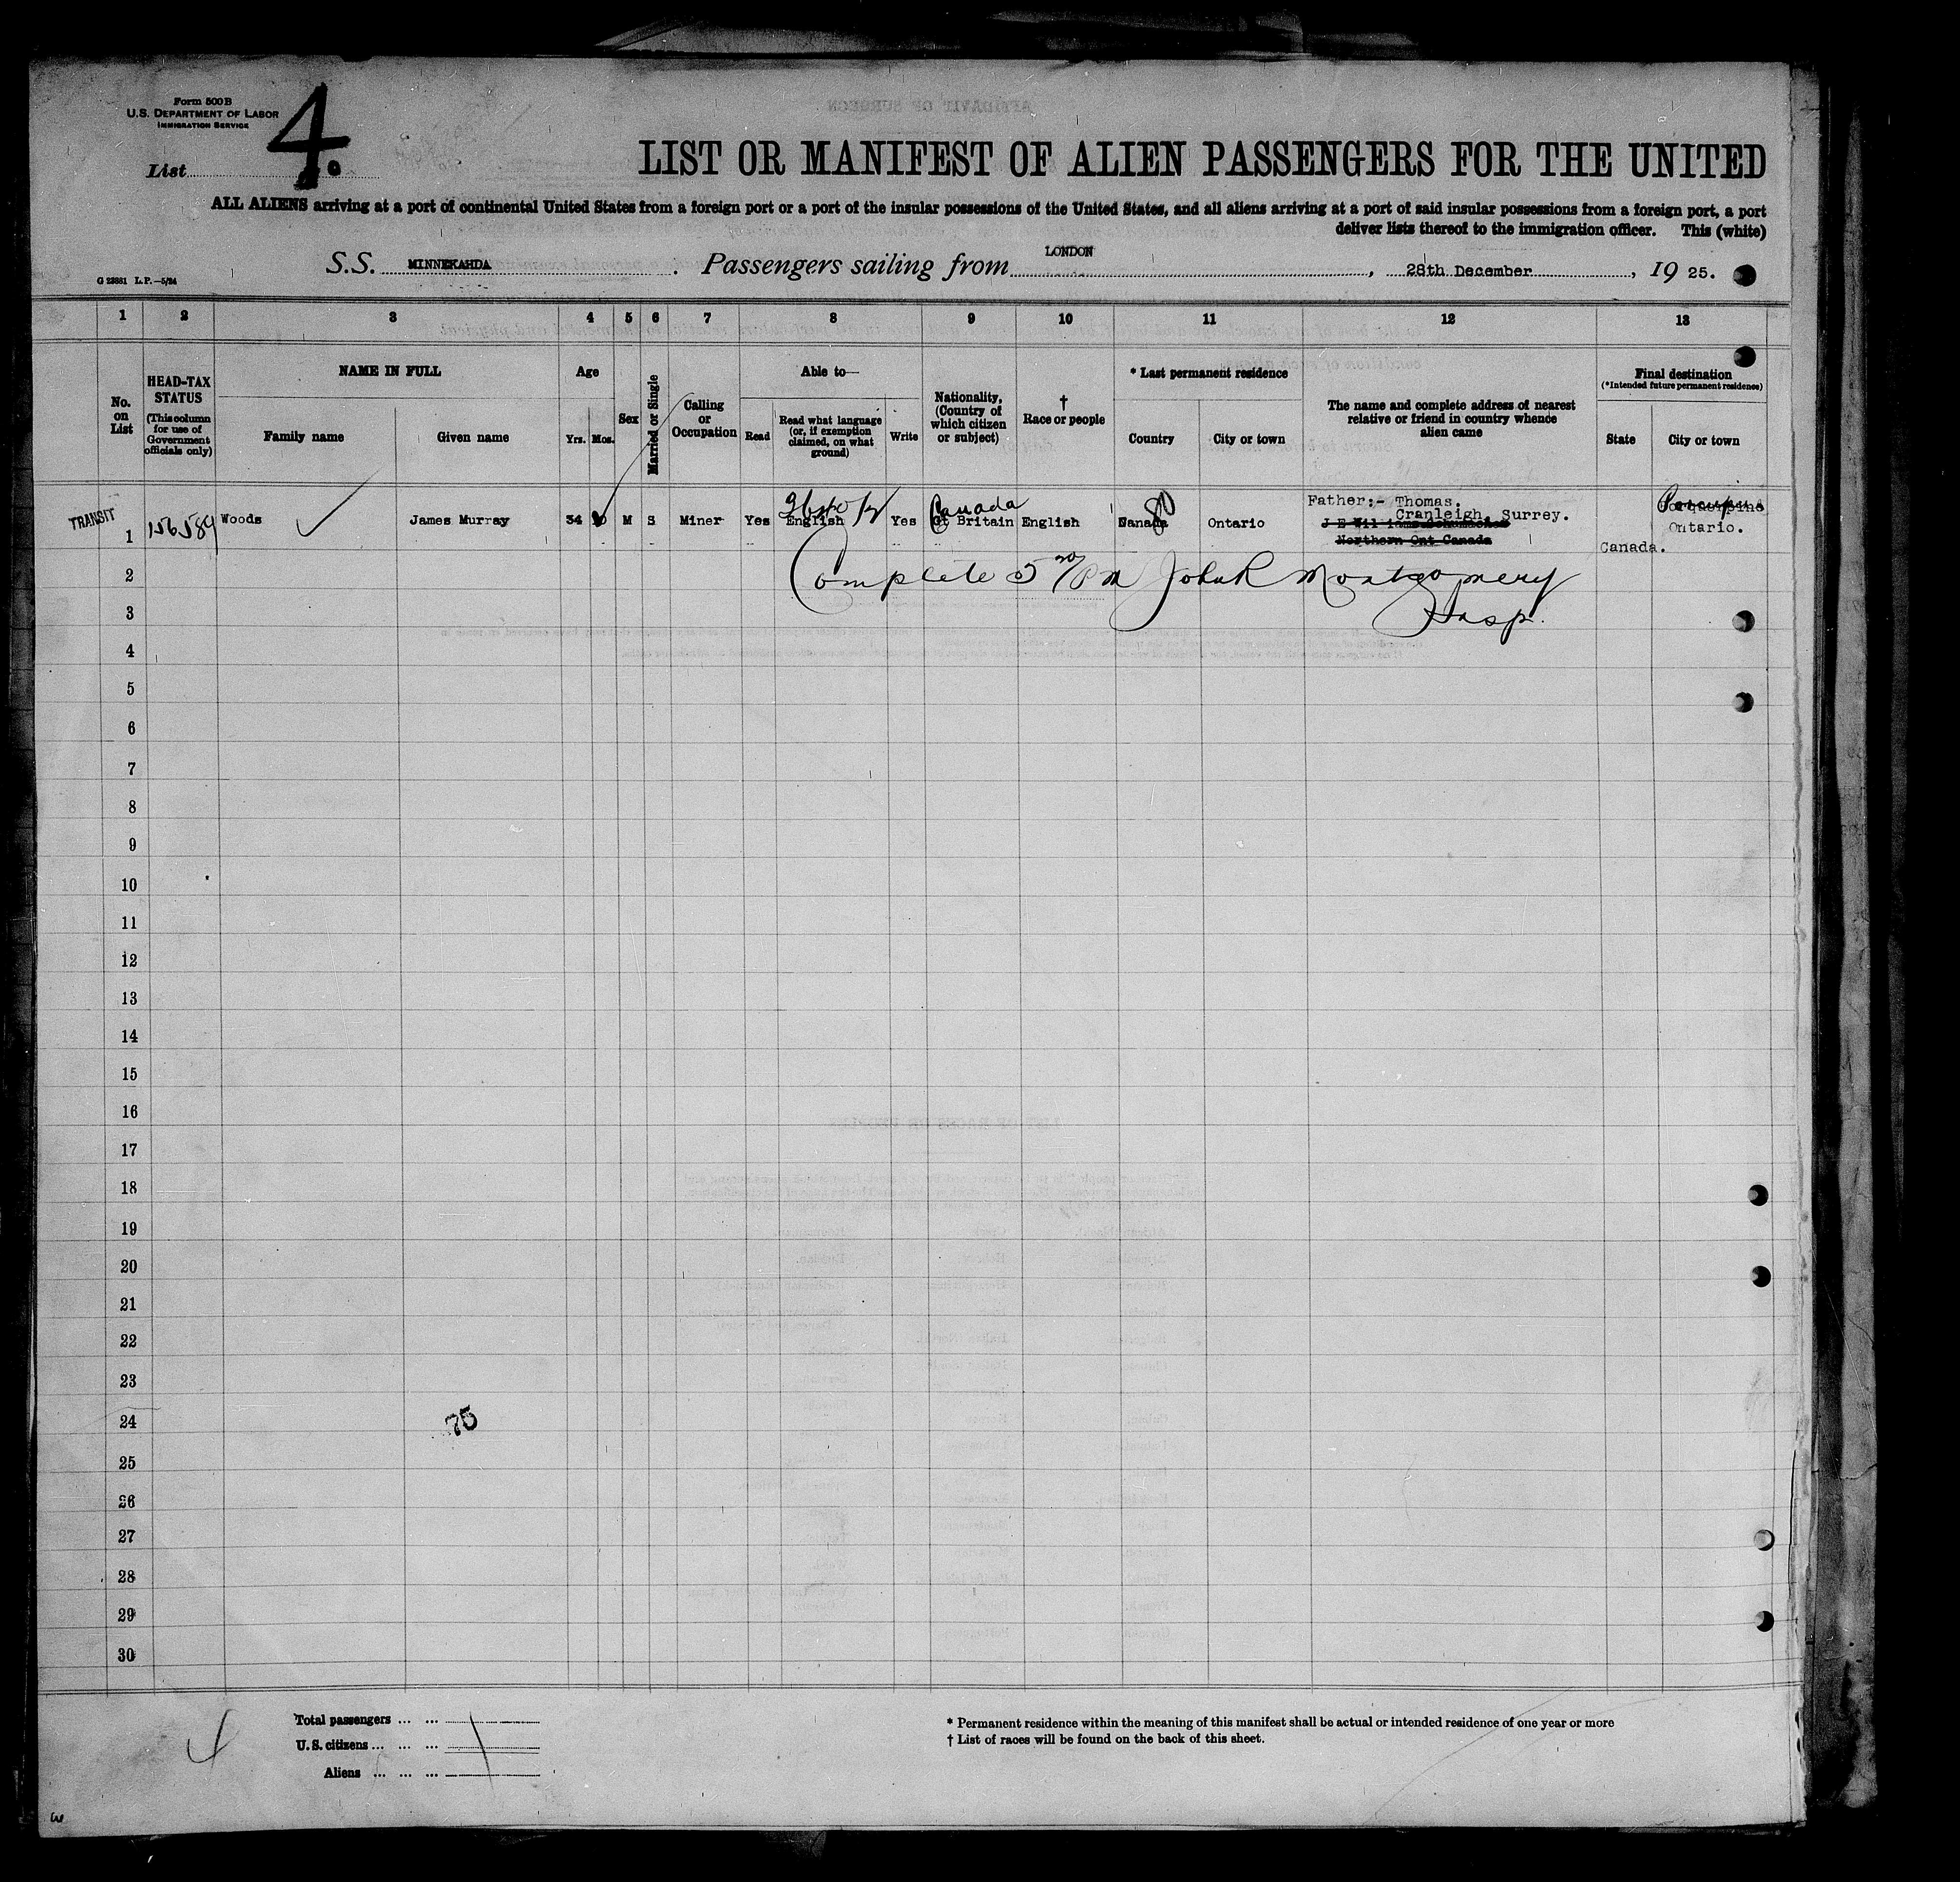 Form 500 B
U.S. DEPARTMENT OF LABOR
IMMIGRATION SERVICE
List 4.
LIST OR MANIFEST OF ALIEN PASSENGERS FOR THE UNITED
ALL ALIENS arriving at a port of continental United States from a foreign port or a port of the insular possessions of the United States, and all aliens arriving at a port of said insular possessions from a foreign port, a port
deliver lists thereof to the immigration officer. This (white)
S.S. MINNEKAHDA. Passengers sailing from LONDON, 28th December, 19 25.
G 23881 L.P.—5/24
1 2 3 4 5 6 7 8 9 10 11 12 13
No. on List
HEAD-TAX STATUS
(This column for use of Government officials only)
NAME IN FULL
Family name
Given name
Age
Yrs. Mos.
Sex
Married or Single
Calling or Occupation
Able to—
Read
Read what language (or, if exemption claimed, on what ground)
Write
Nationality, (Country of which citizen or subject)
†
Race or people
* Last permanent residence
Country
City or town
The name and complete address of nearest relative or friend in country whence alien came
Final destination
(*Intended future permanent residence)
State
City or town
TRANSIT
1 156584 Woods James Murray 34 M S Miner Yes English Yes Canada Gt Britain English Canada Ontario
Father:- Thomas.
Cranleigh, Surrey.
J E Williams Schumacher
Northern Ont Canada
Porcupine
Ontario.
Canada.
Complete 5 PM John R Montgomery
Insp.
2
3
4
5
6
7
8
9
10
11
12
13
14
15
16
17
18
19
20
21
22
23
24 75
25
26
27
28
29
30
Total passengers ... ...
U.S. citizens ... ... ...
Aliens ... ... ...
* Permanent residence within the meaning of this manifest shall be actual or intended residence of one year or more
† List of races will be found on the back of this sheet.